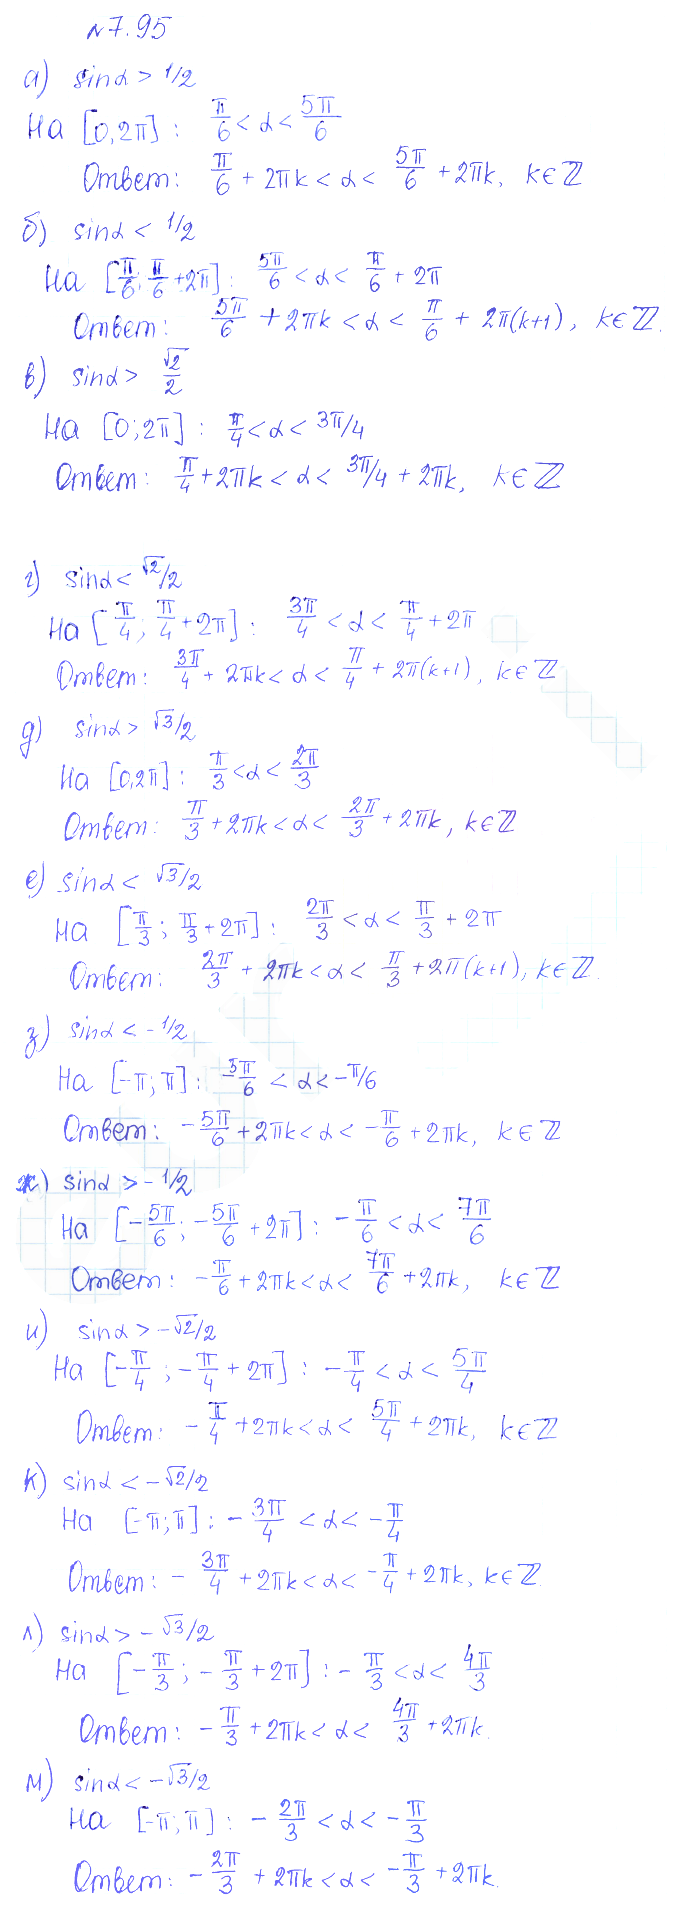 №7.95
а) sinα > 1/2
На [0,2π] : π/6 < α < 5π/6
Ответ: π/6 + 2πk < α < 5π/6 + 2πk, k∈ℤ
б) sinα < 1/2
На [π/6; π/6 + 2π] : 5π/6 < α < π/6 + 2π
Ответ: 5π/6 + 2πk < α < π/6 + 2π(k+1), k∈ℤ.
в) sinα > √2/2
На [0; 2π] : π/4 < α < 3π/4
Ответ: π/4 + 2πk < α < 3π/4 + 2πk, k∈ℤ
г) sinα < √2/2
На [π/4; π/4 + 2π] : 3π/4 < α < π/4 + 2π
Ответ: 3π/4 + 2πk < α < π/4 + 2π(k+1), k∈ℤ
д) sinα > √3/2
На [0,2π] : π/3 < α < 2π/3
Ответ: π/3 + 2πk < α < 2π/3 + 2πk, k∈ℤ
е) sinα < √3/2
На [π/3; π/3 + 2π] : 2π/3 < α < π/3 + 2π
Ответ: 2π/3 + 2πk < α < π/3 + 2π(k+1), k∈ℤ.
з) sinα < -1/2
На [-π; π] : -5π/6 < α < -π/6
Ответ: -5π/6 + 2πk < α < -π/6 + 2πk, k∈ℤ
ж) sinα > -1/2
На [-5π/6; -5π/6 + 2π] : -π/6 < α < 7π/6
Ответ: -π/6 + 2πk < α < 7π/6 + 2πk, k∈ℤ
и) sinα > -√2/2
На [-π/4; -π/4 + 2π] : -π/4 < α < 5π/4
Ответ: -π/4 + 2πk < α < 5π/4 + 2πk, k∈ℤ
к) sinα < -√2/2
На [-π; π] : -3π/4 < α < -π/4
Ответ: -3π/4 + 2πk < α < -π/4 + 2πk, k∈ℤ
л) sinα > -√3/2
На [-π/3; -π/3 + 2π] : -π/3 < α < 4π/3
Ответ: -π/3 + 2πk < α < 4π/3 + 2πk.
м) sinα < -√3/2
На [-π; π] : -2π/3 < α < -π/3
Ответ: -2π/3 + 2πk < α < -π/3 + 2πk.